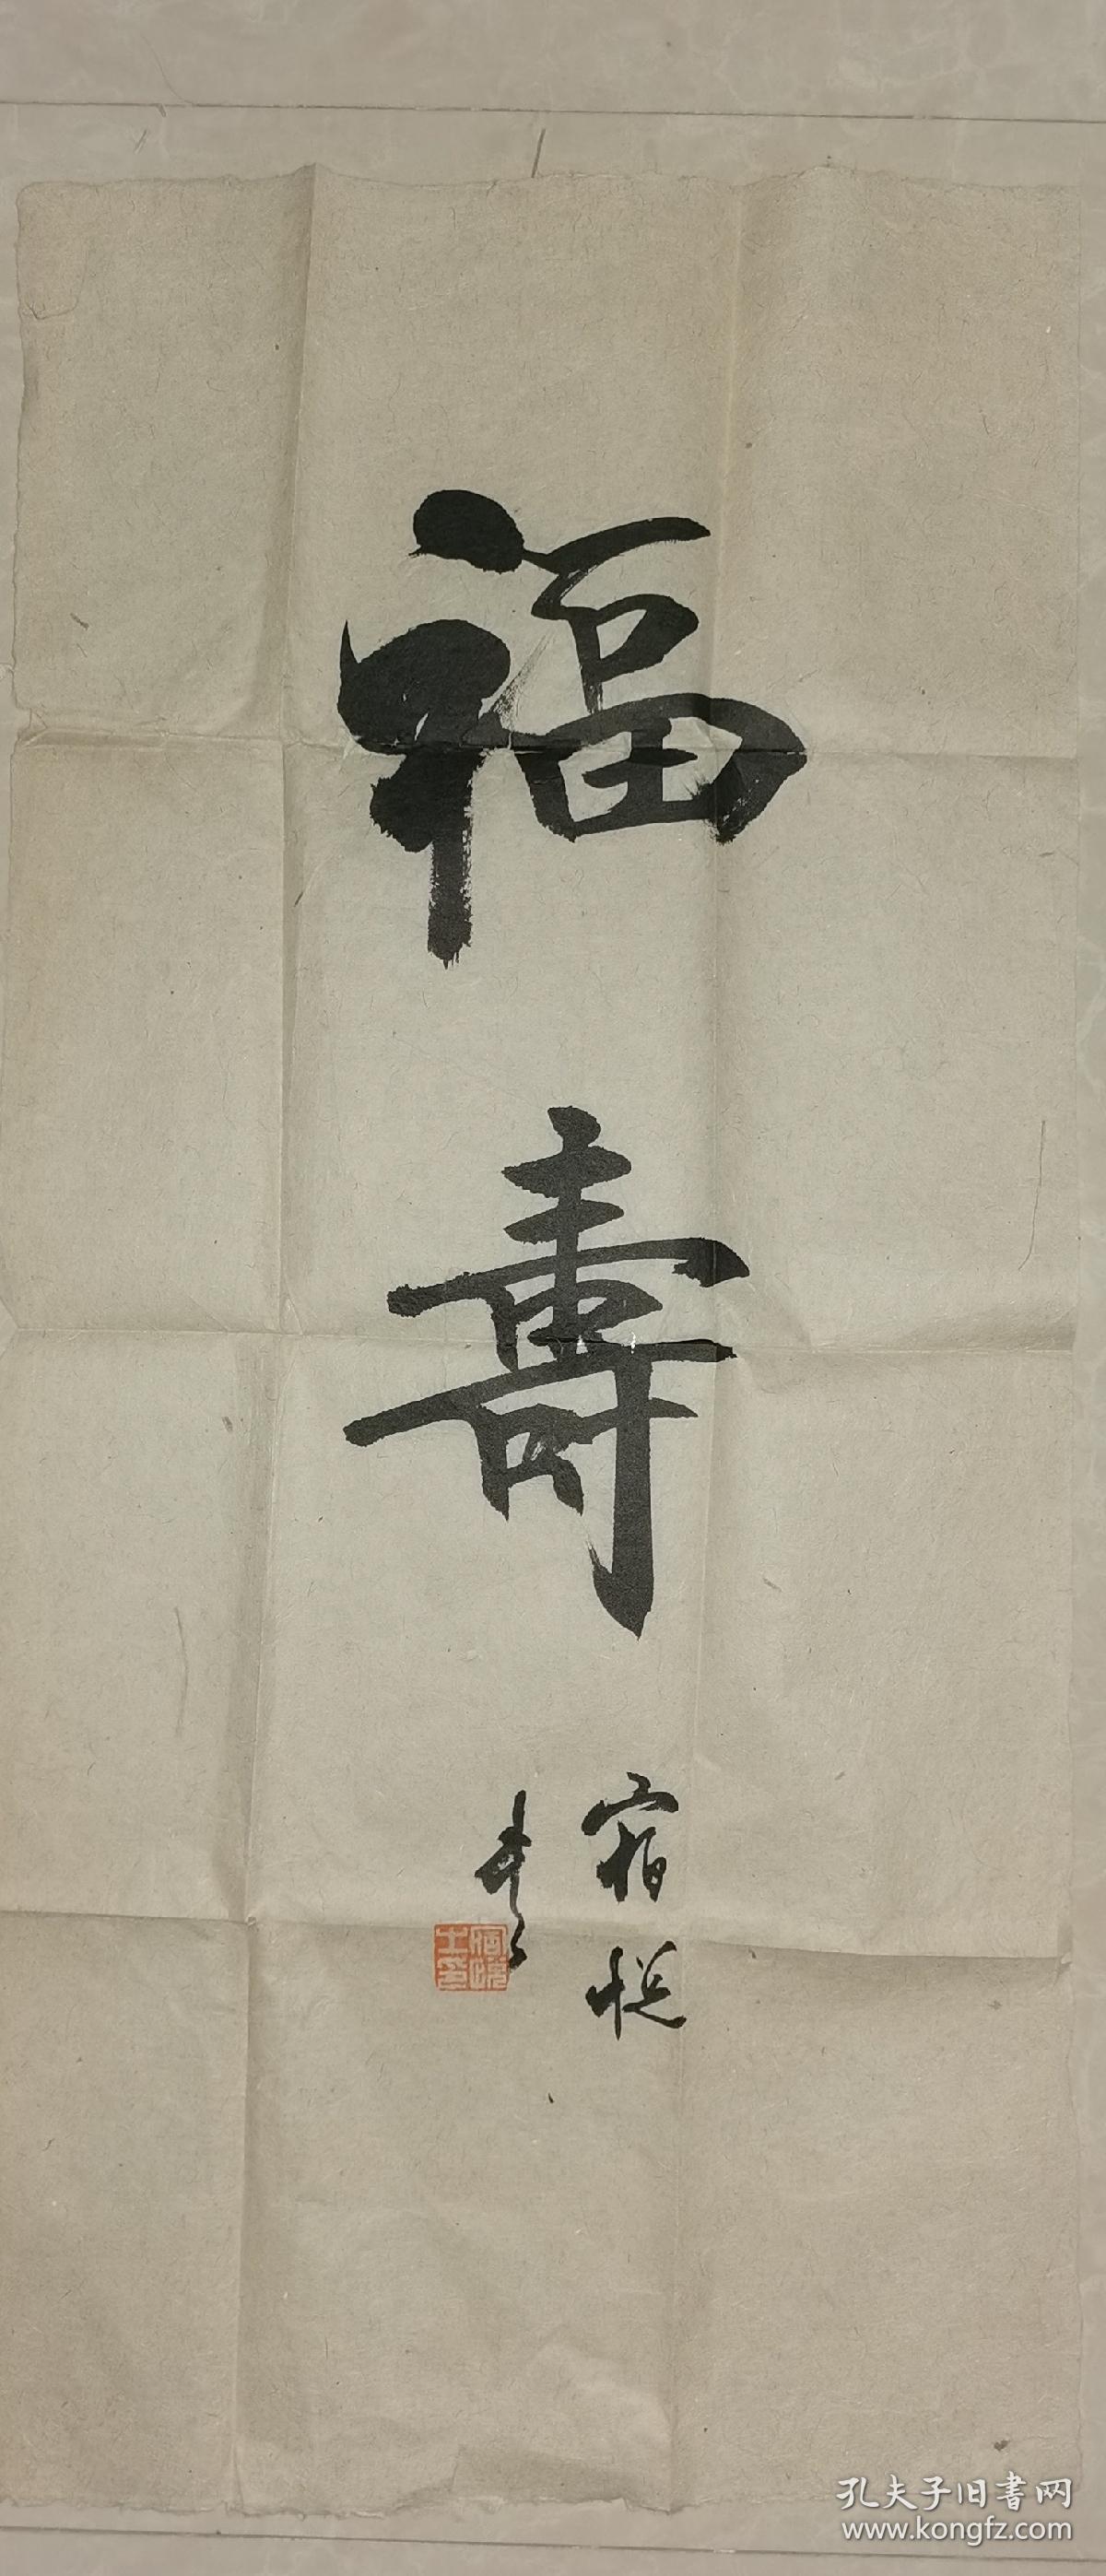 福壽
宿悦
书
孔夫子旧書网
www.kongfz.com